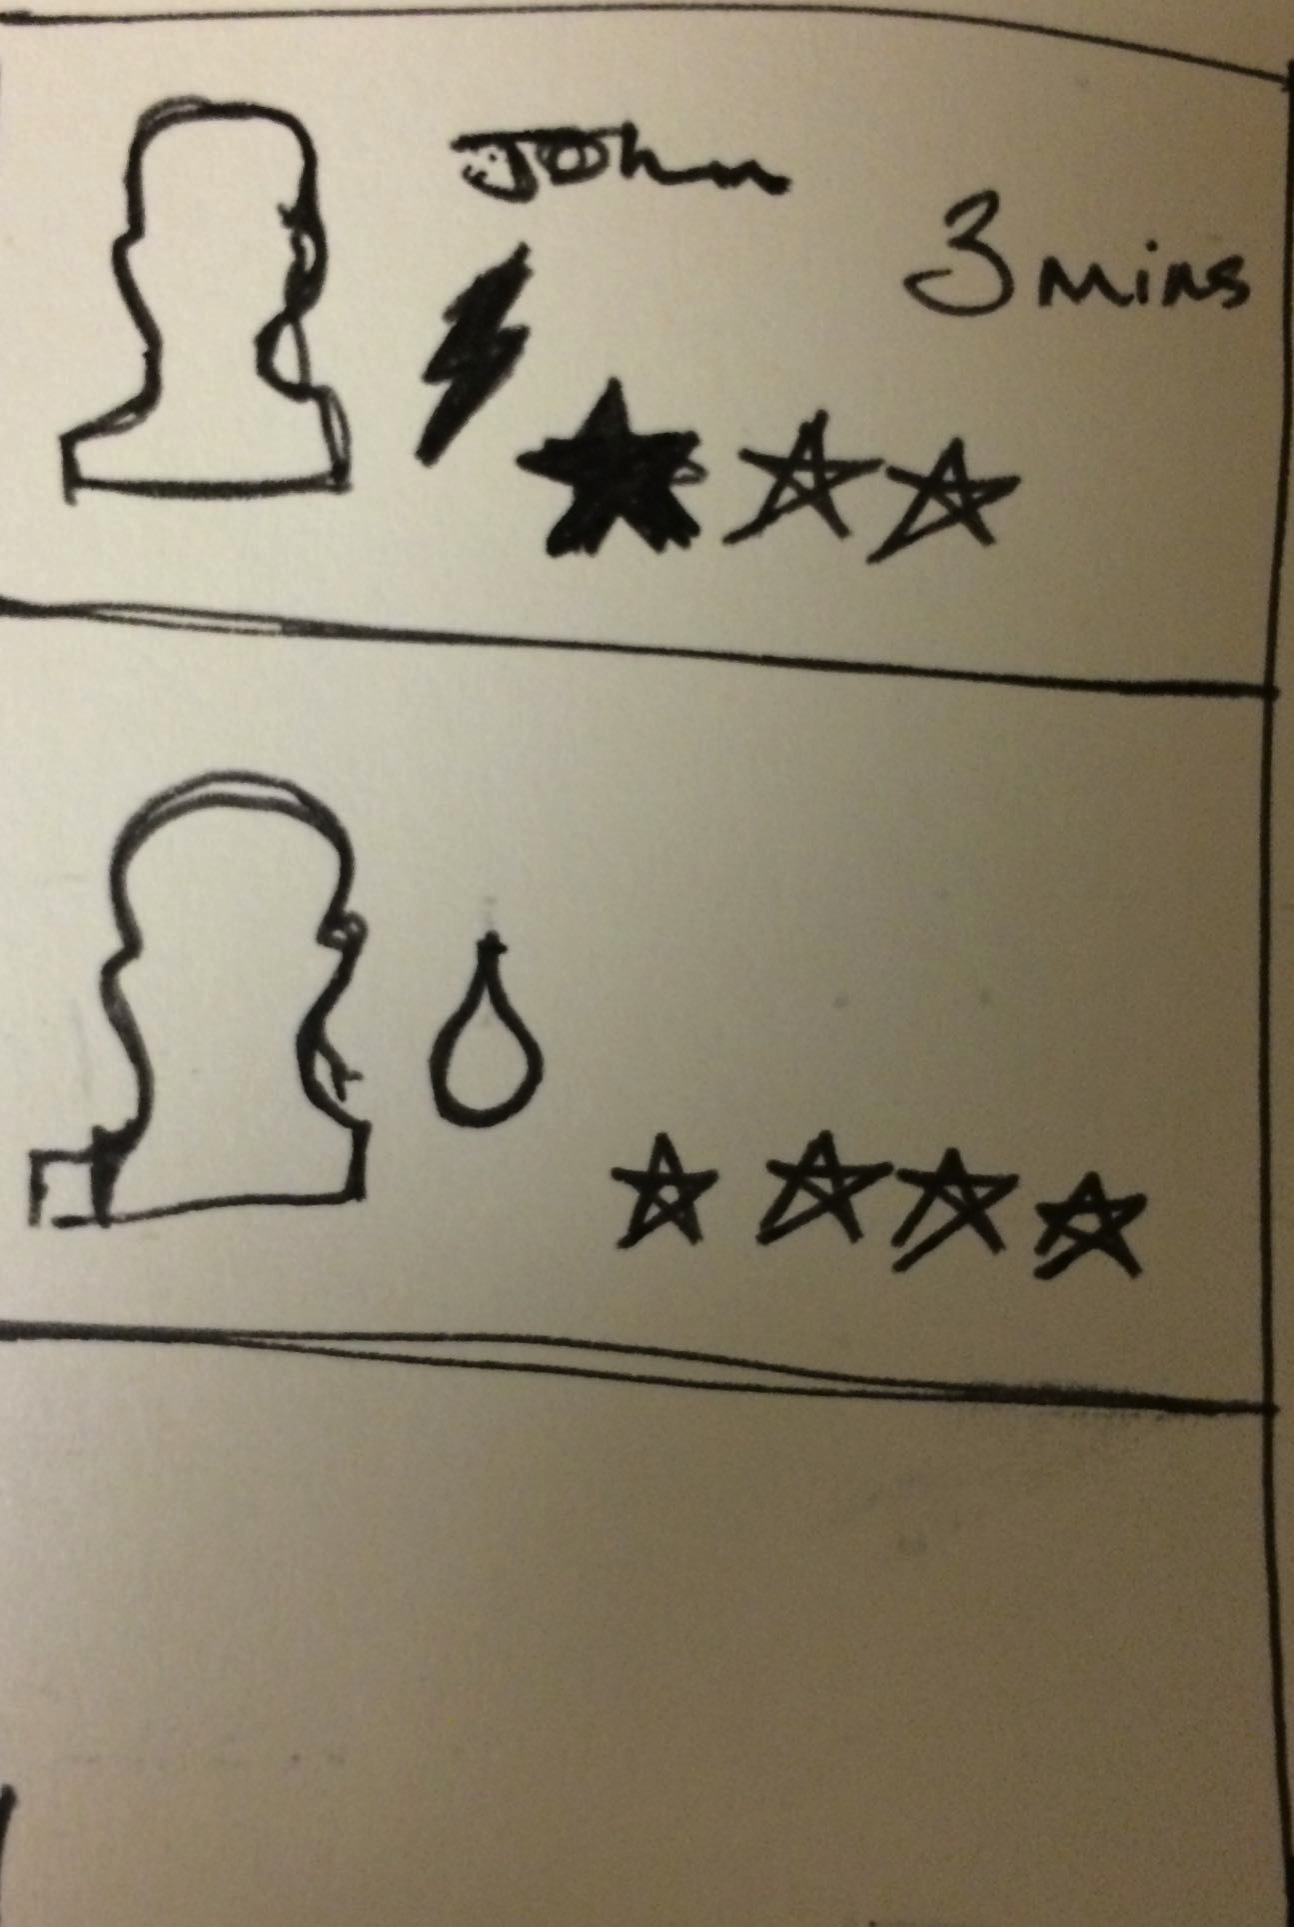 John
3 mins